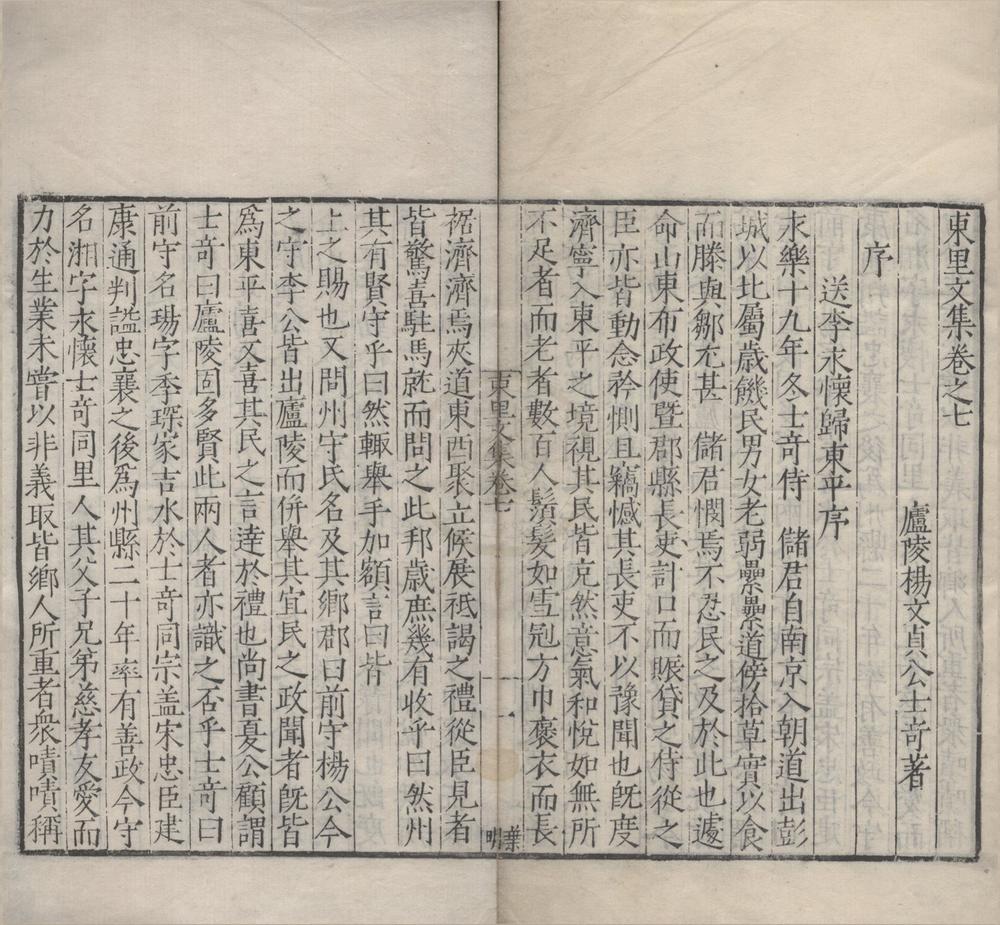 東里文集卷之七
廬陵楊文貞公士奇著
序
送李永懷歸東平序
永樂十九年冬士奇侍 儲君自南京入朝道出彭
城以北屬歲饑民男女老弱纍纍道傍拾草實以食
而滕與鄒尤甚 儲君憫焉不忍民之及於此也遽
命山東布政使暨郡縣長吏計口而賑貸之侍從之
臣亦皆動念矜惻且竊憾其長吏不以豫聞也旣度
濟寧入東平之境視其民皆充然意氣和悅如無所
不足者而老者數百人鬚髮如雪冠方巾褒衣而長
東里文集卷七
一
葉明
裾濟濟焉夾道東西聚立候展祗謁之禮從臣見者
皆驚喜駐馬就而問之此邦歲庶幾有收乎曰然州
其有賢守乎曰然輙舉手加額言曰皆
上之賜也又問州守氏名及其鄉郡曰前守楊公今
之守李公皆出廬陵而併舉其宜民之政聞者旣皆
爲東平喜又喜其民之言達於禮也尚書夏公顧謂
士奇曰廬陵固多賢此兩人者亦識之否乎士奇曰
前守名瑒字季琛家吉水於士奇同宗盖宋忠臣建
康通判謚忠襄之後爲州縣二十年率有善政今守
名湘字永懷士奇同里人其父子兄弟慈孝友愛而
力於生業未嘗以非義取皆鄉人所重者衆嘖嘖稱